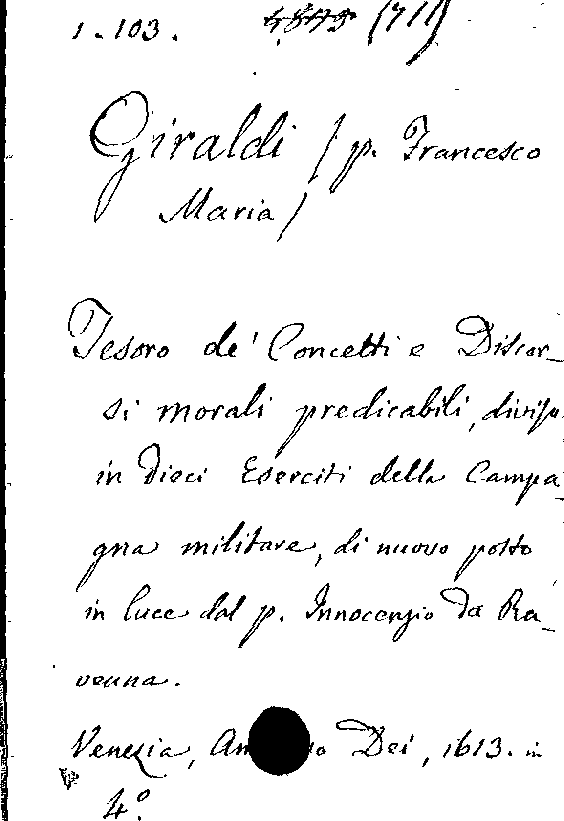 1.103. 4873 (711)
Giraldi (p. Francesco
Maria)
Tesoro de' Concetti e Discor_
si morali predicabili, diviso
in Dieci Eserciti della Campa_
gna militare, di nuovo posto
in luce dal p. Innocenzio da Ra_
venna.
Venezia, Dei, 1613. in
4º.